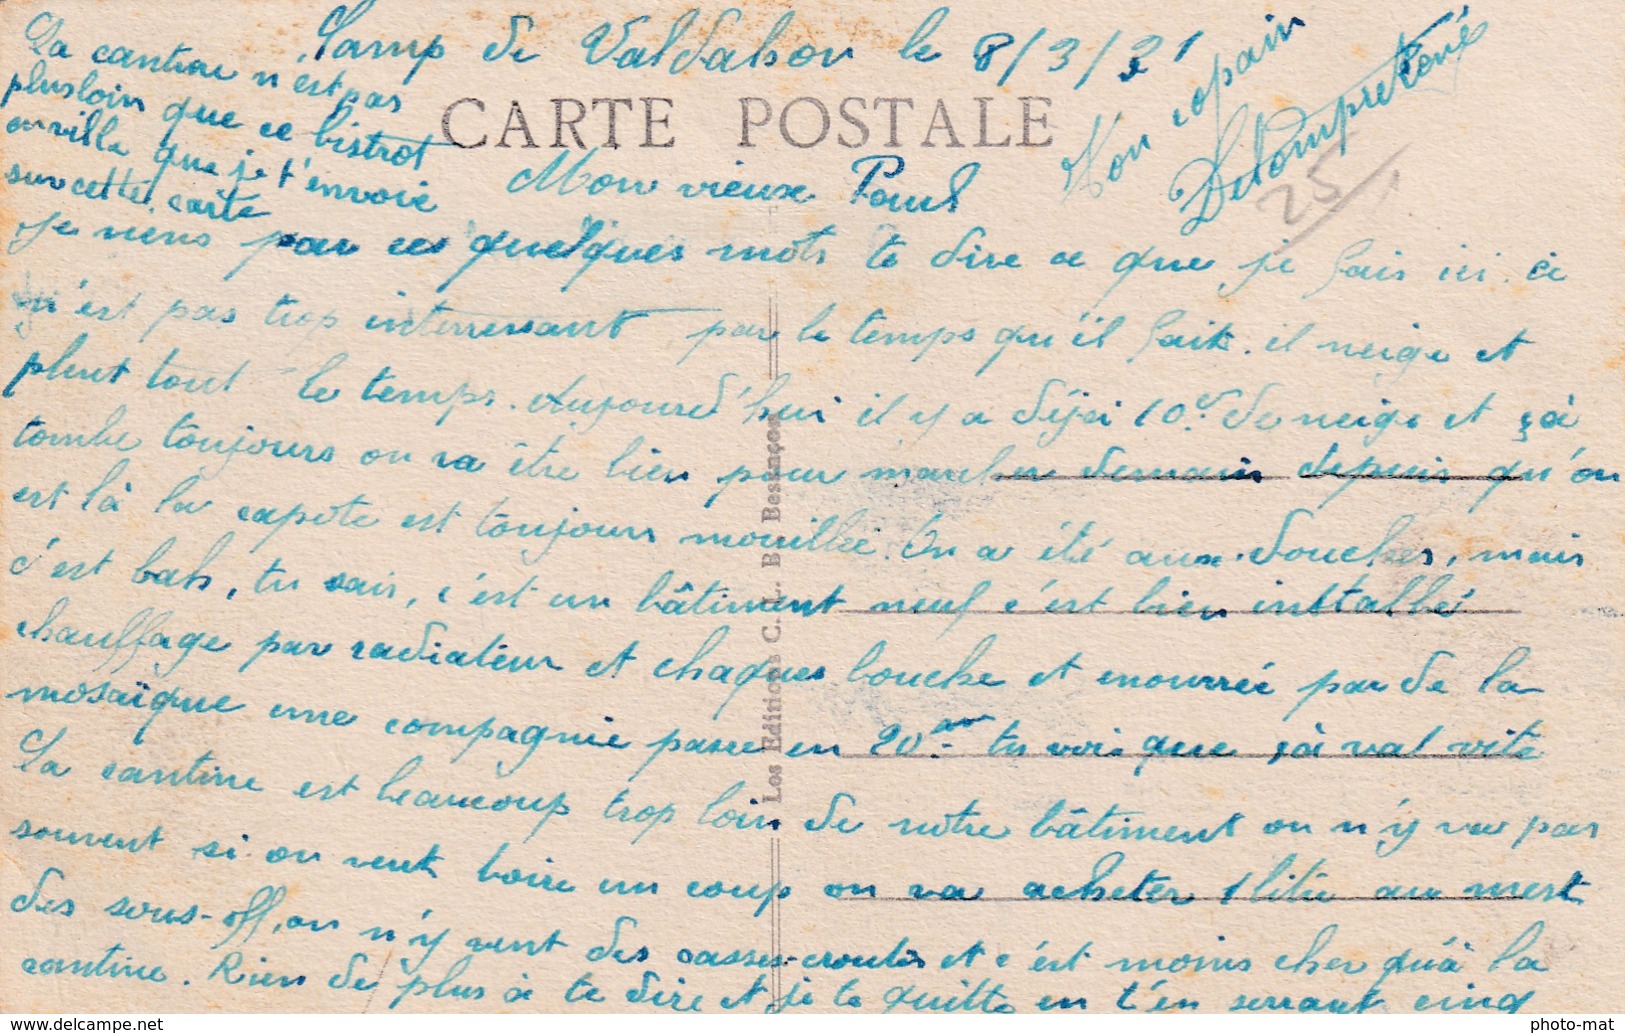 Camp de Valdahon le 8/3/31
CARTE POSTALE
Mon vieux Paul
je viens par ces quelques mots te dire ce que je fais ici. ce
n'est pas trop interressant par le temps qu'il fait. il neige et
pleut tout le temps. Aujourd'hui il y a déjà 10c. de neige et çà
tombe toujours on va être bien pour marcher demain depuis qu'on
est là la capote est toujours mouillée. On a été aux douches, mais
c'est bah, tu sais, c'est un bâtiment neuf c'est bien installé
chauffage par radiateur et chaques bouche et par de la
mosaïque une compagnie passe en 20m tu vois que çà va vite
La cantine est beaucoup trop loin de notre bâtiment on n'y va pas
souvent si on veut boire un coup on va acheter 1 litre aux mess
des sous-off, on n'y vent des casses-croutes et c'est moins cher qu'à la
cantine. Rien de plus à te dire et je te quitte en t'en serrant cinq
Mon copain
Delompret René
25/1
La cantine n'est pas
plus loin que ce bistrot
en ville que je t'envoie
sur cette carte
Les Editions C. L. B Besançon
photo-mat